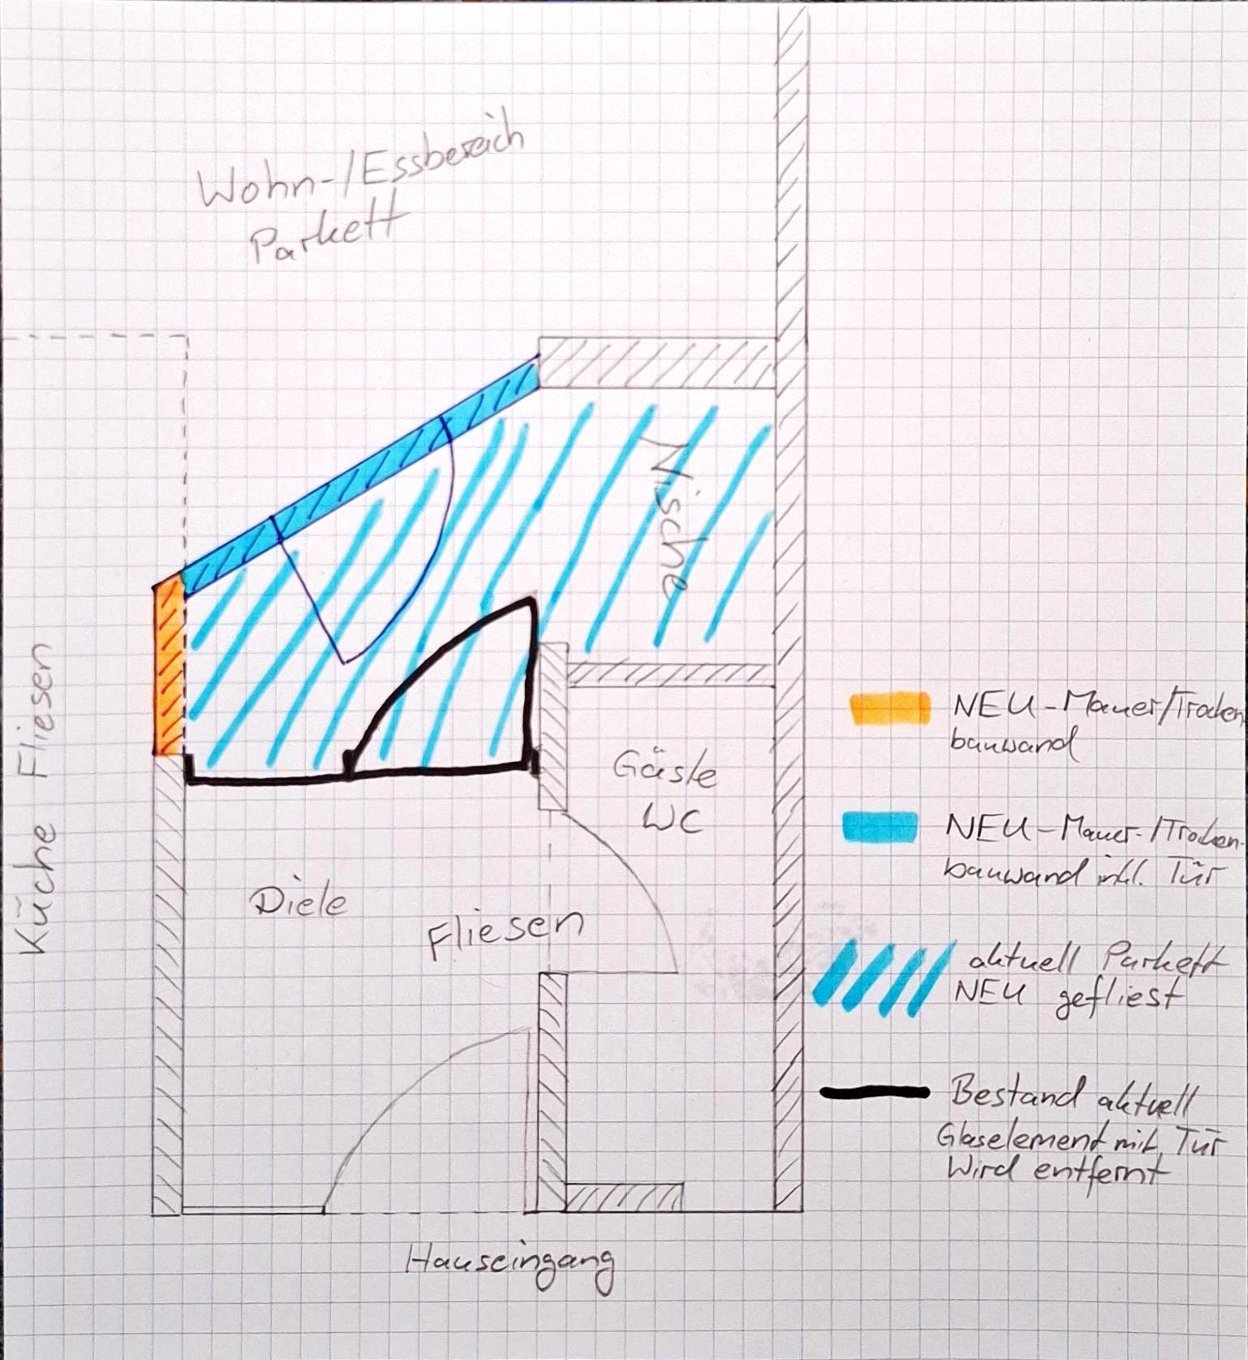 Wohn-/Essbereich
Parkett
Nische
Küche Fliesen
Gäste
WC
Diele
Fliesen
Hauseingang
NEU-Mauer/Trocken
bauwand
NEU-Mauer-/Trocken-
bauwand inkl. Tür
aktuell Parkett
NEU gefliest
Bestand aktuell
Glaselement mit Tür
Wird entfernt